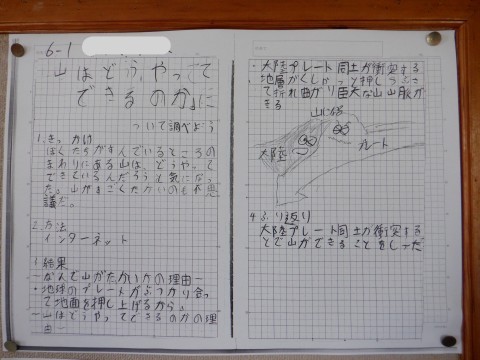 6-1
「山はどうやって
できるのか」に
ついて調べよう
1.きっかけ
ぼくたちがすんでいるところの
まわりにある山は、どうやって
できているんだろうと気になっ
た。山がすごくたかいのも不思
議だ。
2.方法
インターネット
3.結果
ーなんで山がたかいかの理由ー
・地球のプレートがぶつかり合っ
て地面を押し上げるから。
ー山はどうやってできるのかの理
由ー
・大陸プレート同士が衝突する
地層がくしゃっと押しつぶさ
て折れ曲がり巨大な山山脈が
きる
山になる
大陸
プレート
4.ふり返り
大陸プレート同士が衝突する
とで山ができることをしった